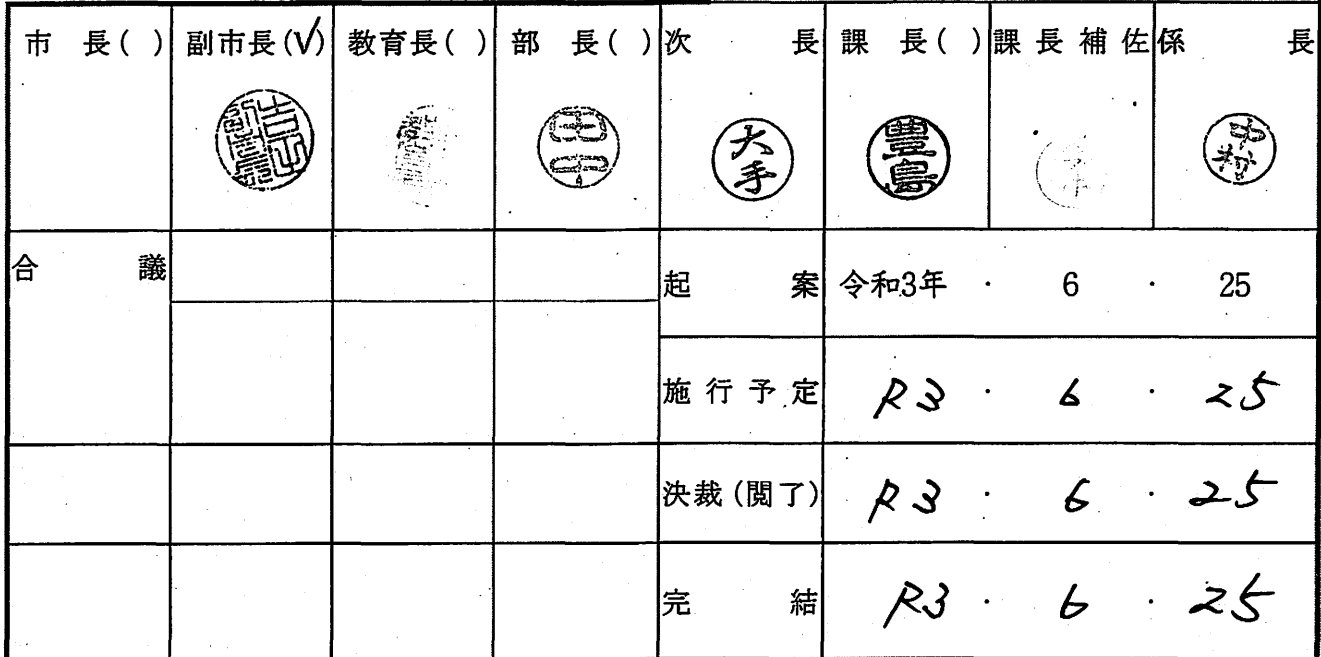 市 長( ) 副市長(√) 教育長( ) 部 長( ) 次 長 課 長( ) 課長補佐 係 長
田中 大手 豊島 中村
合 議
起 案 令和3年 ・ 6 ・ 25
施行予定 R3 ・ 6 ・ 25
決裁(閲了) R3 ・ 6 ・ 25
完 結 R3 ・ 6 ・ 25